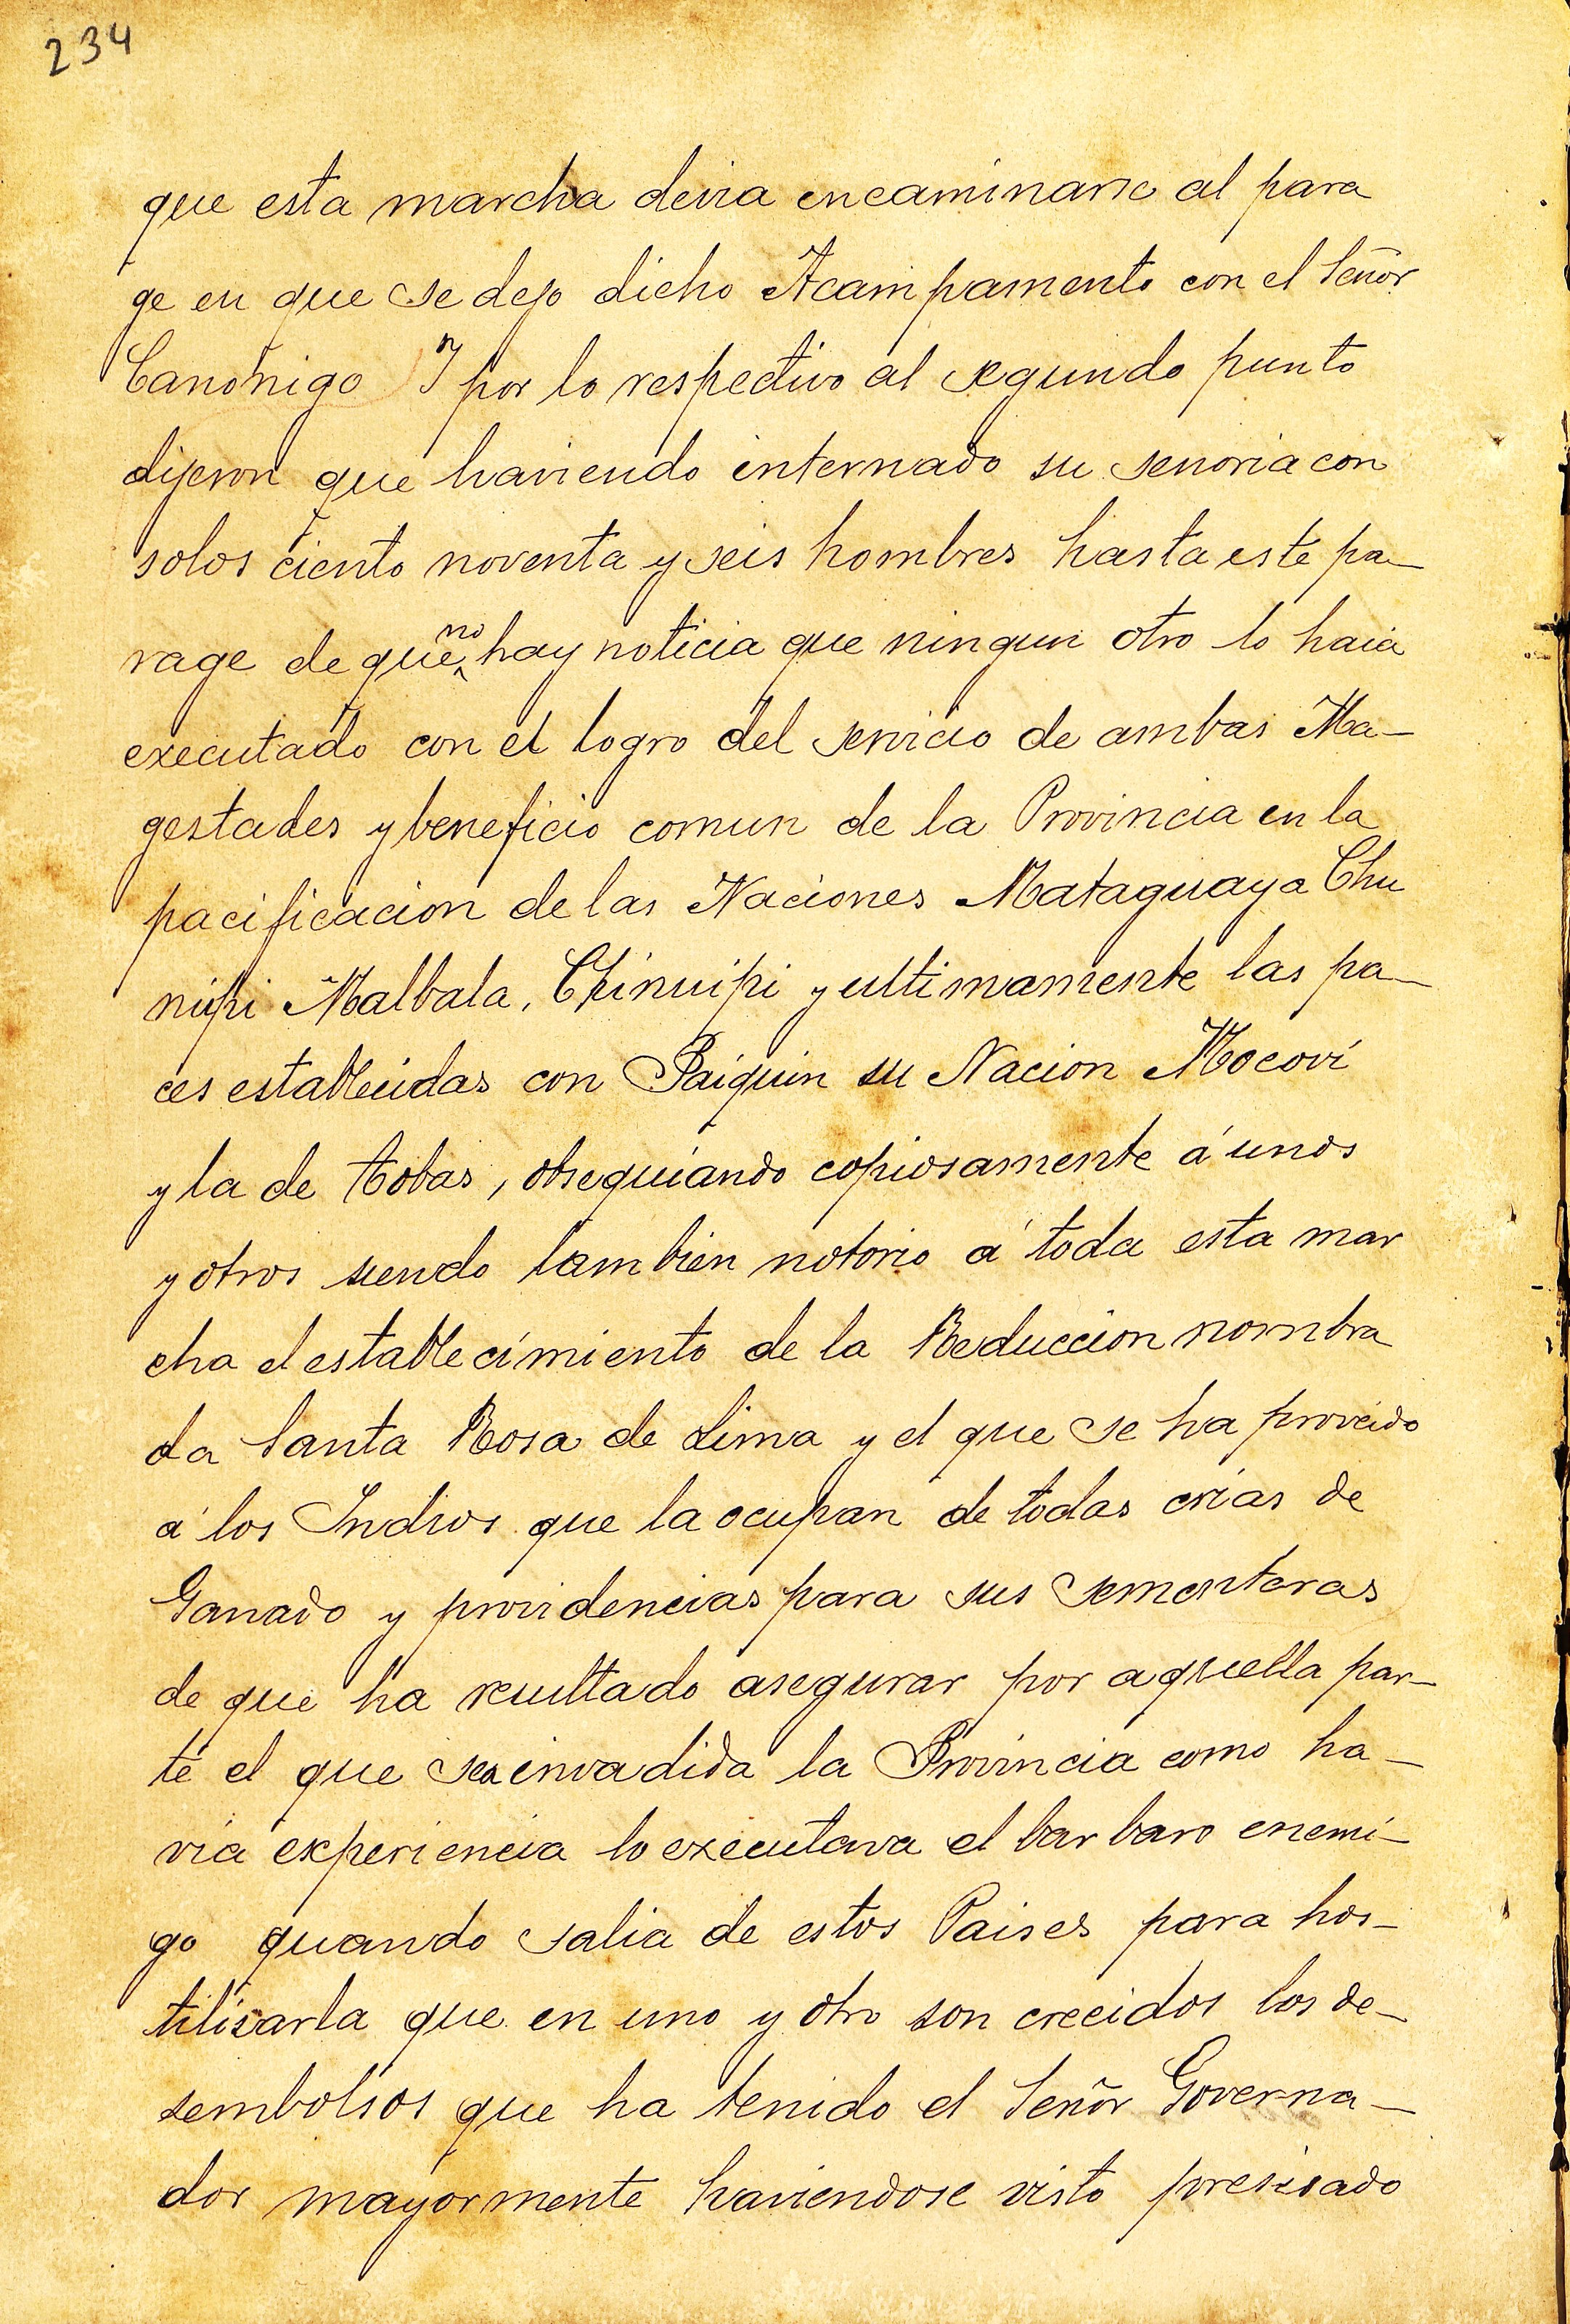 234
que esta marcha devia encaminarse al para
ge en que se dejo dicho Acampamento con el Señor
Canonigo Y por lo respectivo al segundo punto
dijeron que haviendo internado su senoria con
solos ciento noventa y seis hombres hasta este pa-
rage de que no hay noticia que ningun otro lo haia
executado con el logro del servicio de ambas Ma-
gestades y beneficio comun de la Provincia en la
pacificacion de las Naciones Mataguaya Chu
nipi Malbala, Chinuipi y ultimamente las pa-
ces establecidas con Paiquin su Nacion Mocoví
y la de tobas, obsequiando copiosamente á unos
y otros siendo tambien notorio á toda esta mar
cha el establecimiento de la Reduccion nombra
da Santa Rosa de Lima y el que se ha proveido
á los Indios que la ocupan de todas crias de
Ganado y providencias para sus sementeras
de que ha resultado asegurar por aquella par-
te el que sea invadida la Provincia como ha-
via experiencia lo executava el barbaro enemi-
go quando salia de estos Paises para hos-
tilisarla que en uno y otro son crecidos los de-
sembolsos que ha tenido el Señor Governa-
dor mayormente haviendose visto presisado